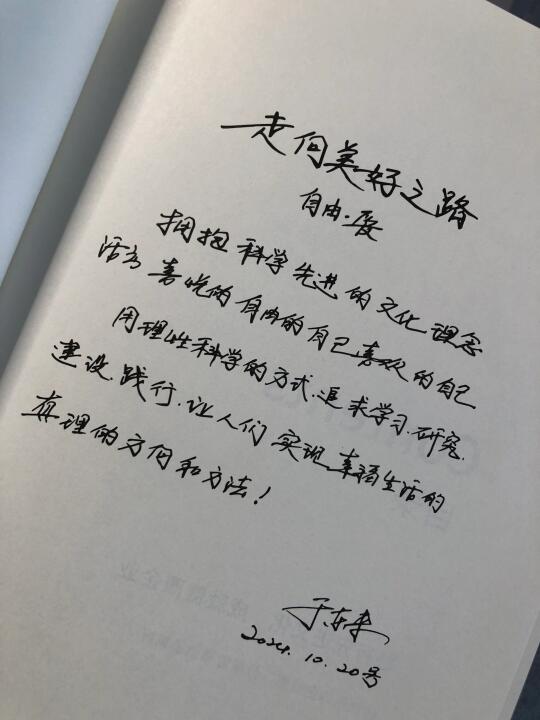 走向美好之路
自由·爱
拥抱科学先进的文化理念
活出喜悦的自由的自己喜欢的自己
用理性科学的方式、追求学习、研究、
建设、践行、让人们实现幸福生活的
真理的方向和方法!
于东来
2024.10.20号